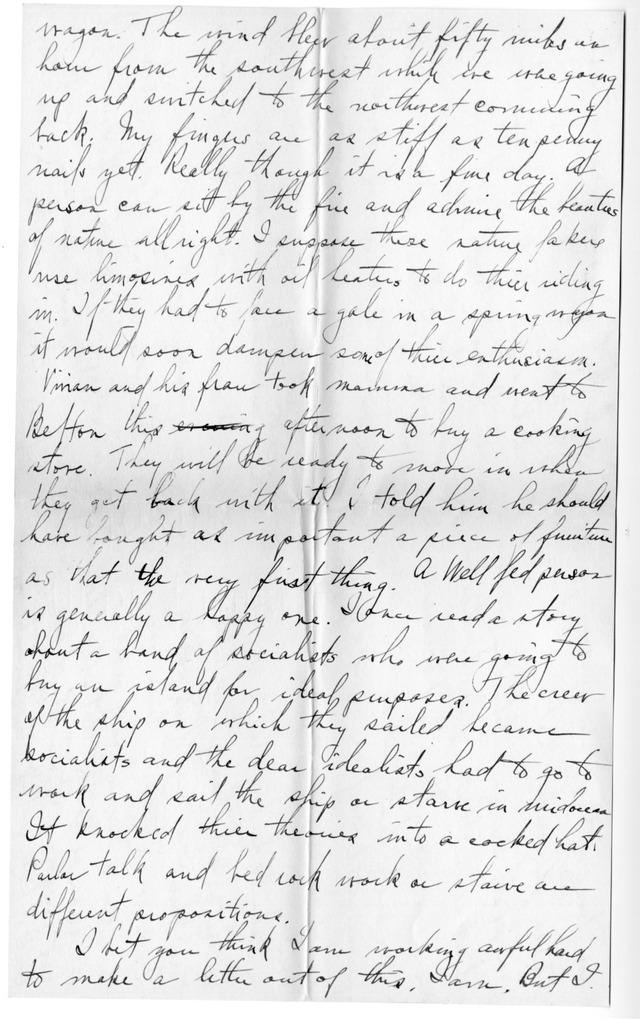 wagon. The wind blew about fifty miles an
hour from the southwest while we was going
up and switched to the northwest comming
back. My fingers are as stiff as ten penny
nails yet. Really though it is a fine day. A
person can sit by the fire and admire the beauties
of nature all right. I suppose these nature fakers
use limosines with oil heaters to do thier riding
in. If they had to face a gale in a spring wagon
it would soon dampen some of thier enthusiasm.
Vivian and his frau took mamma and went to
Belton this evening afternoon to buy a cooking
stove. They will be ready to move in when
they get back with it. I told him he should
have bought as important a piece of furniture
as that the very first thing. A well fed person
is generally a happy one. I once read a story
about a band of socialists who were going to
buy an island for ideal purposes. The crew
of the ship on which they sailed became
socialists and the dear idealists had to go to
work and sail the ship or starve in midocean
It knocked thier theories into a cocked hat.
Parlor talk and bed rock work or starve are
different propositions.
I bet you think I am working awful hard
to make a letter out of this. I am. But I